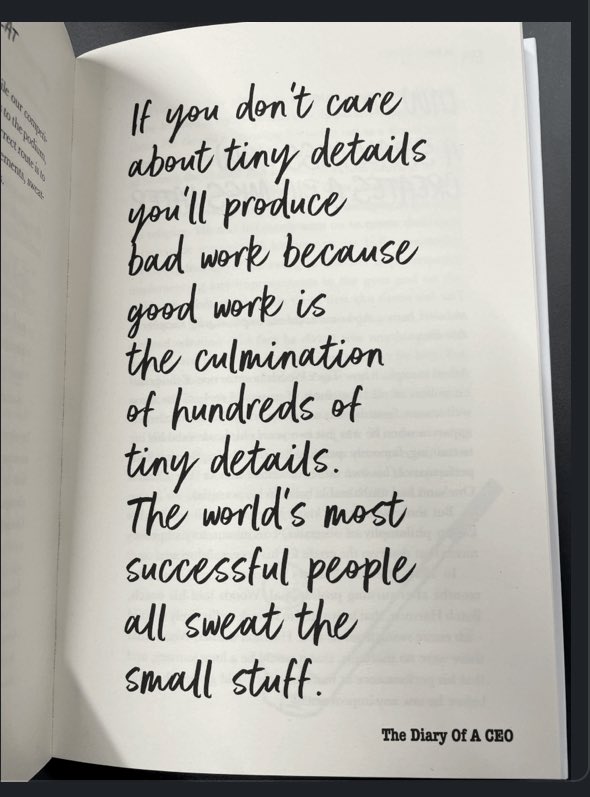 our competi-
to the podium,
route is to
If you don't care
about tiny details
you'll produce
bad work because
good work is
the culmination
of hundreds of
tiny details.
The world's most
successful people
all sweat the
small stuff.
The Diary Of A CEO